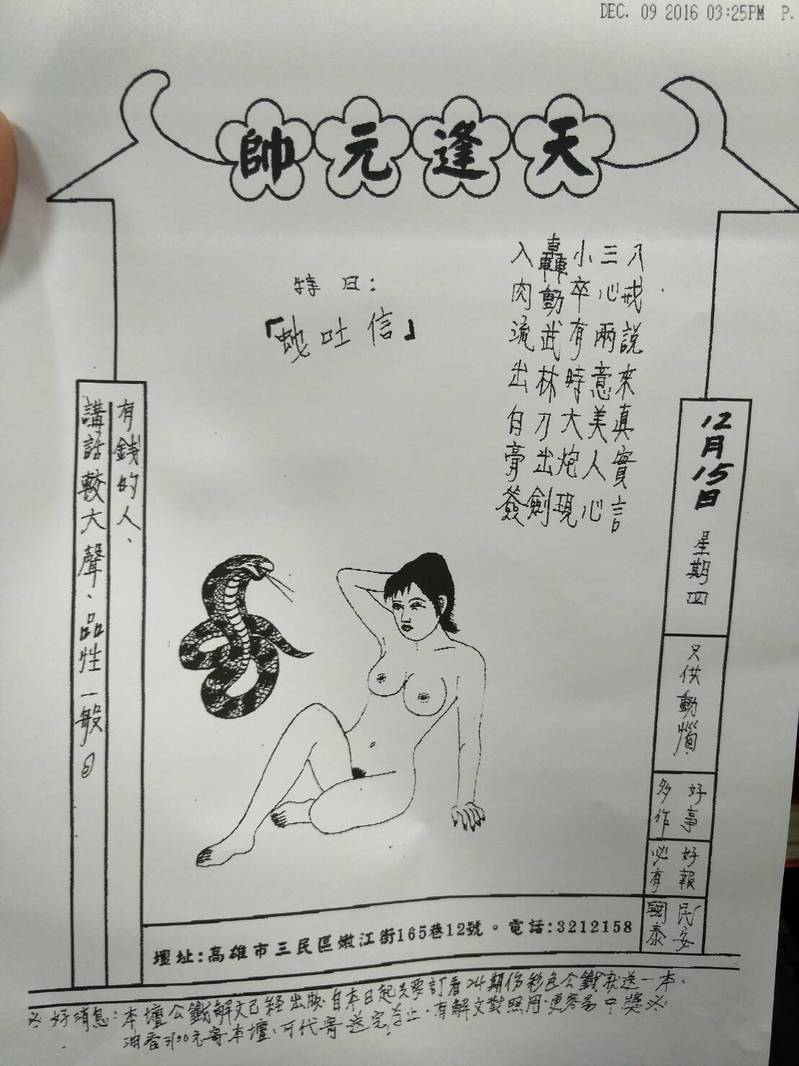 DEC. 09 2016 03:25PM P.
天蓬元帥
八戒說來真實言
三心兩意美人心
小卒有時大炮現
轟動武林刀出劍
入肉流出白膏簽
特曰：
「蛇吐信」
12月15日
星期四
只供動惱
好事
多作
好報
必有
民安
國泰
有錢的人、
講話較大聲、品性一般。
壇址:高雄市三民區嫩江街165巷12號。電話:3212158
好消息：本壇公籤解文已經出版，自本日起只要訂看24期份彩色公籤就送一本、
油香300元寄本壇、可代寄送完為止。有解文對照用更容易中獎